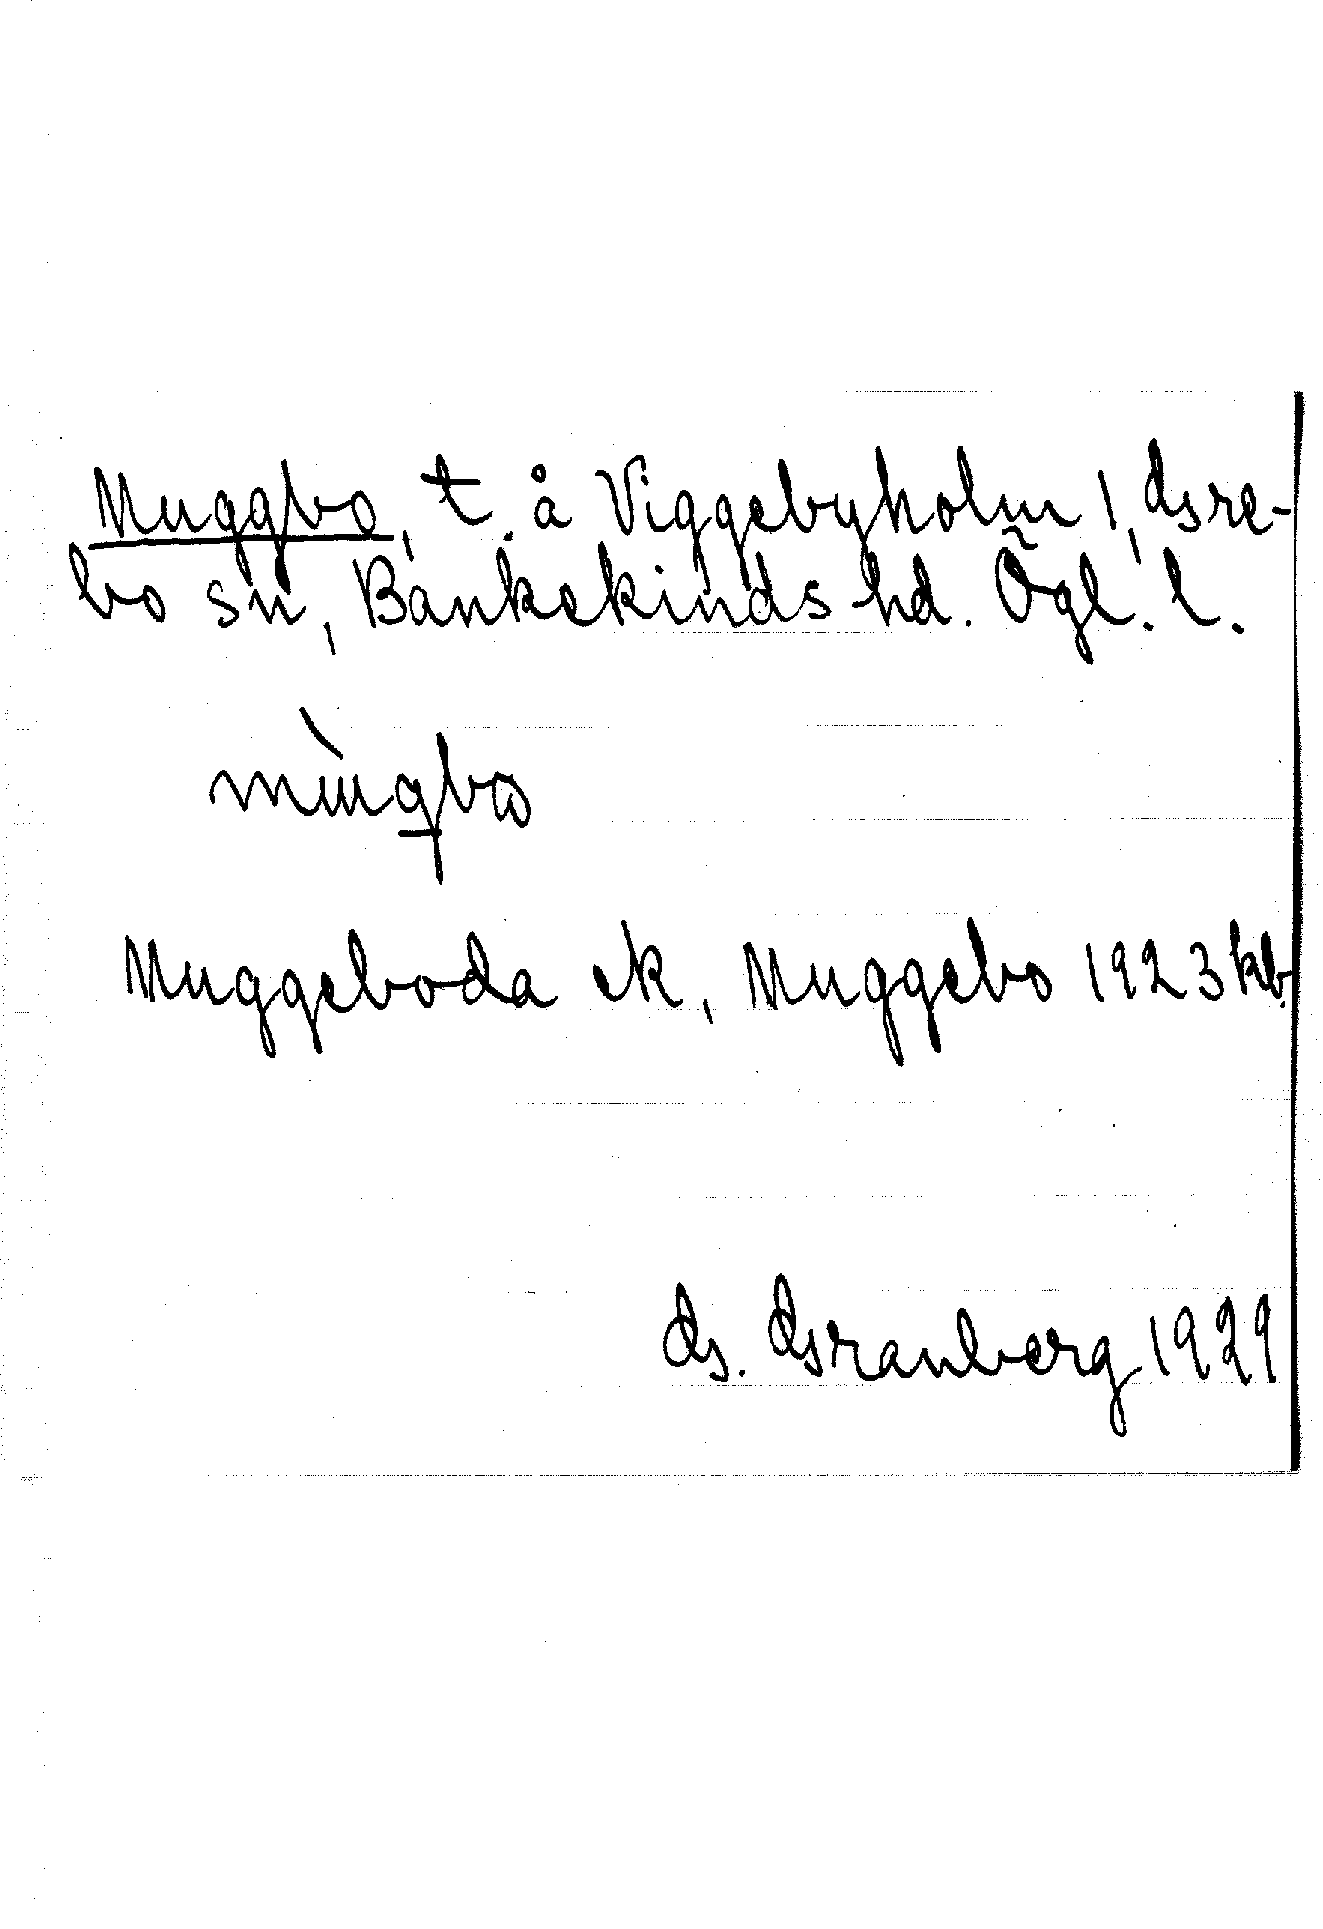 Muggbo, t. å Viggebyholm 1, Gre-
bo sn, Bankekinds hd. Ögl. l.
Muggeboda ek, Muggebo 1923 kb.
G. Granberg 1929